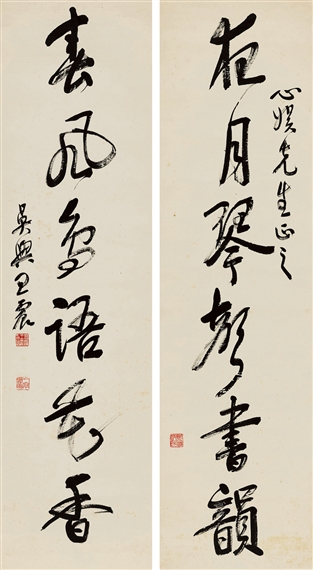 夜月琴聲書韻
心先生正之
春風鳥語花香
吳興王震